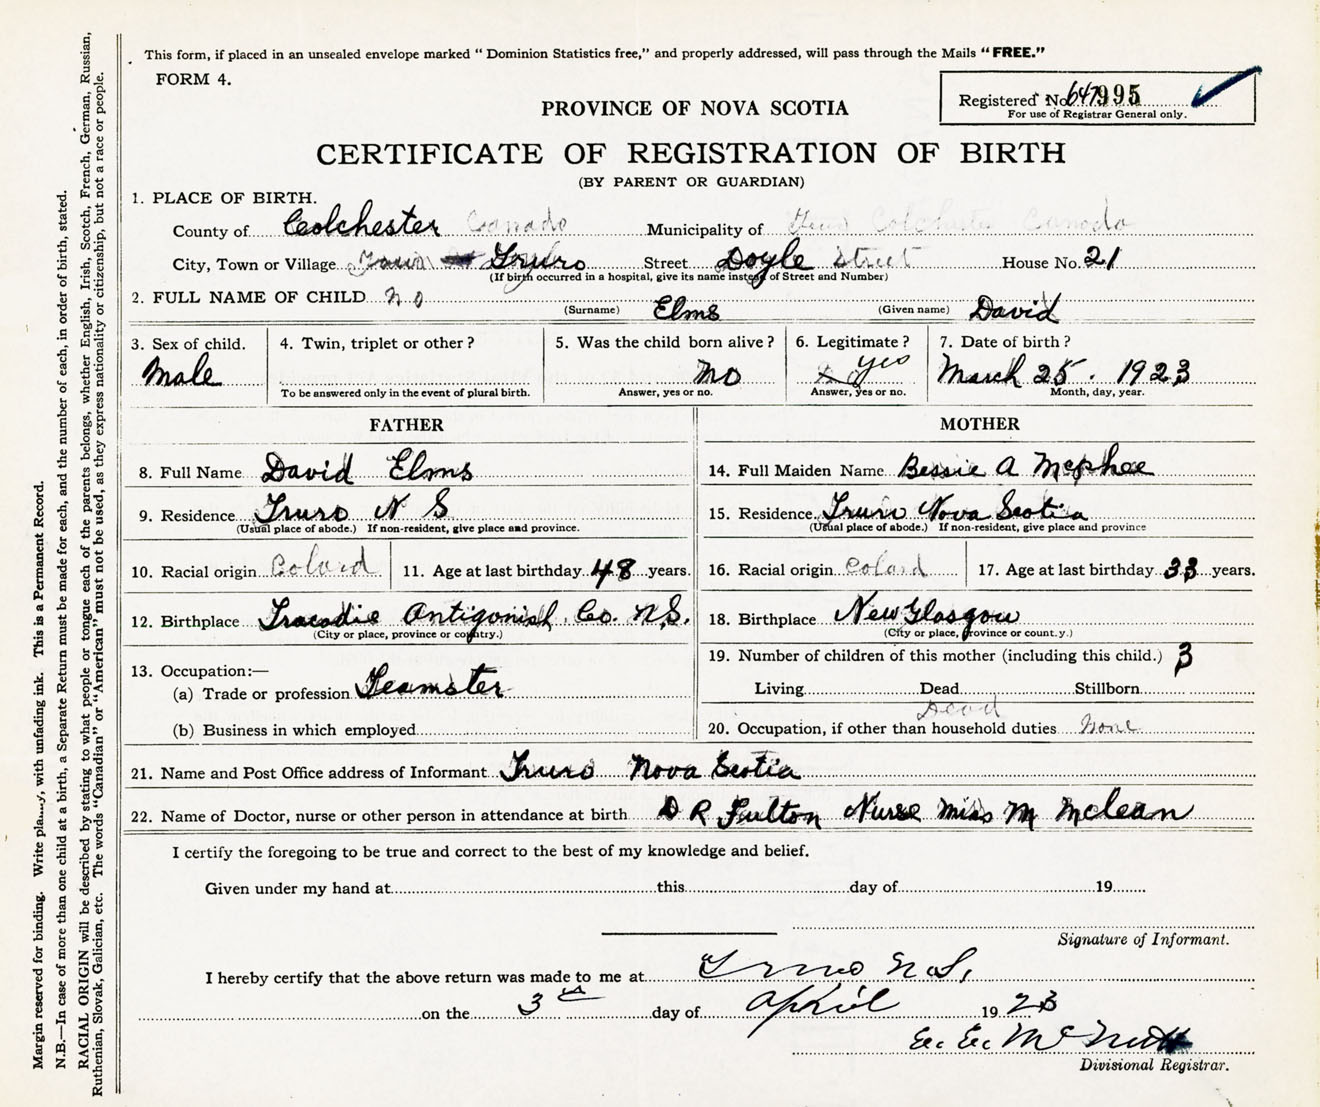 This form, if placed in an unsealed envelope marked " Dominion Statistics free," and properly addressed, will pass through the Mails "FREE."
FORM 4.
Registered No. 647995
For use of Registrar General only.
PROVINCE OF NOVA SCOTIA
CERTIFICATE OF REGISTRATION OF BIRTH
(BY PARENT OR GUARDIAN)
1. PLACE OF BIRTH.
County of Colchester Canada Municipality of Colchester Canada
City, Town or Village Town Truro Street Doyle Street House No. 21
(If birth occurred in a hospital, give its name instead of Street and Number)
2. FULL NAME OF CHILD no (Surname) Elms (Given name) David
3. Sex of child. 4. Twin, triplet or other? 5. Was the child born alive? 6. Legitimate? 7. Date of birth?
Male no yes March 25. 1923
To be answered only in the event of plural birth. Answer, yes or no. Answer, yes or no. Month, day, year.
FATHER MOTHER
8. Full Name David Elms 14. Full Maiden Name Bessie A Mcphee
9. Residence Truro N S 15. Residence Truro Nova Scotia
(Usual place of abode.) If non-resident, give place and province. (Usual place of abode.) If non-resident, give place and province
10. Racial origin Colard 11. Age at last birthday 48 years. 16. Racial origin Colard 17. Age at last birthday 33 years.
12. Birthplace Tracadie Antigonish Co. N.S. 18. Birthplace New Glasgow
(City or place, province or country.) (City or place, province or count.y.)
13. Occupation:— 19. Number of children of this mother (including this child.) 3
(a) Trade or profession Teamster Living Dead Stillborn
Dead
(b) Business in which employed 20. Occupation, if other than household duties None
21. Name and Post Office address of Informant Truro Nova Scotia
22. Name of Doctor, nurse or other person in attendance at birth D R Fulton Nurse Miss M Mclean
I certify the foregoing to be true and correct to the best of my knowledge and belief.
Given under my hand at this day of 19
Signature of Informant.
I hereby certify that the above return was made to me at Truro N.S.
on the 3rd day of April 1923
Ec. Ec. McNutt
Divisional Registrar.
Margin reserved for binding. Write plainly, with unfading ink. This is a Permanent Record.
N.B.—In case of more than one child at a birth, a Separate Return must be made for each, and the number of each, in order of birth, stated.
RACIAL ORIGIN will be described by stating to what people or tongue each of the parents belongs, whether English, Irish, Scotch, French, German, Russian,
Ruthenian, Slovak, Galician, etc. The words "Canadian" or "American" must not be used, as they express nationality or citizenship, but not a race or people.